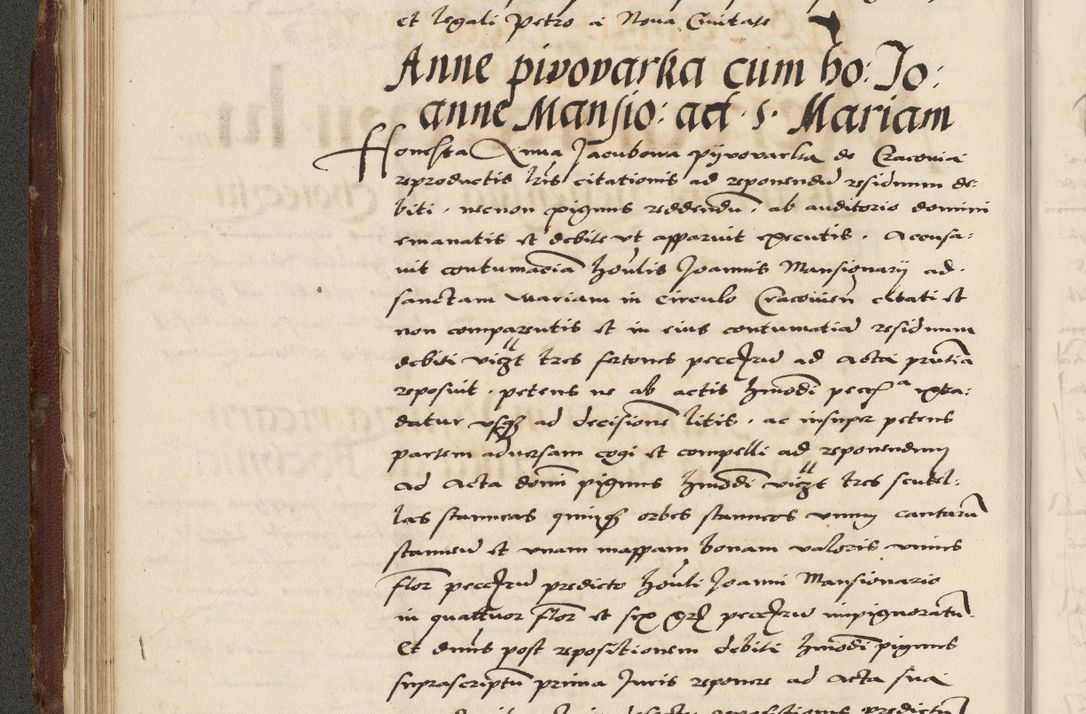 et legali Petro a Nova Civitate
Anne pivovarka cum ho: Jo:
anne Mansio: ad S. Mariam
Honesta Anna Jacubowa pyvovarka de Cracovia
reproductis lris citationis ad reponendũ residuum de:
biti, necnon pignus reddendũ, ab auditorio domini
emanatis et debite ut apparuit executis, Accusa:
vit contumaciã hoñlis Joannis Mansionarij ad
sanctam Mariam in circulo Cracovień citati et
non comparentis et in eius contumatiã residuum
debiti vicʒt tres fertones pecc̃ in ad Acta pñtia
reposuit, petens ne ab actis hmõdi pecc̃ extra:
datur usqʒ ad decisionẽ litis, ac insuper petens
partem adversam cogi et compelli ad reponendum
ad Acta domi pignus hmõdi vicʒt tres scutel:
las stanneas quinqʒ orbes stanneos unum cantarũ
stanneũ et unam mappam bonam valoris unius
flor predicto hoñli Joanni Mansionario
in quattuor flor et sex impignoratũ.
Et dñus post repositionem debiti hmõdi pignus
suprascriptũ prima Juris reponere ad Acta sua
repositionis predictũ